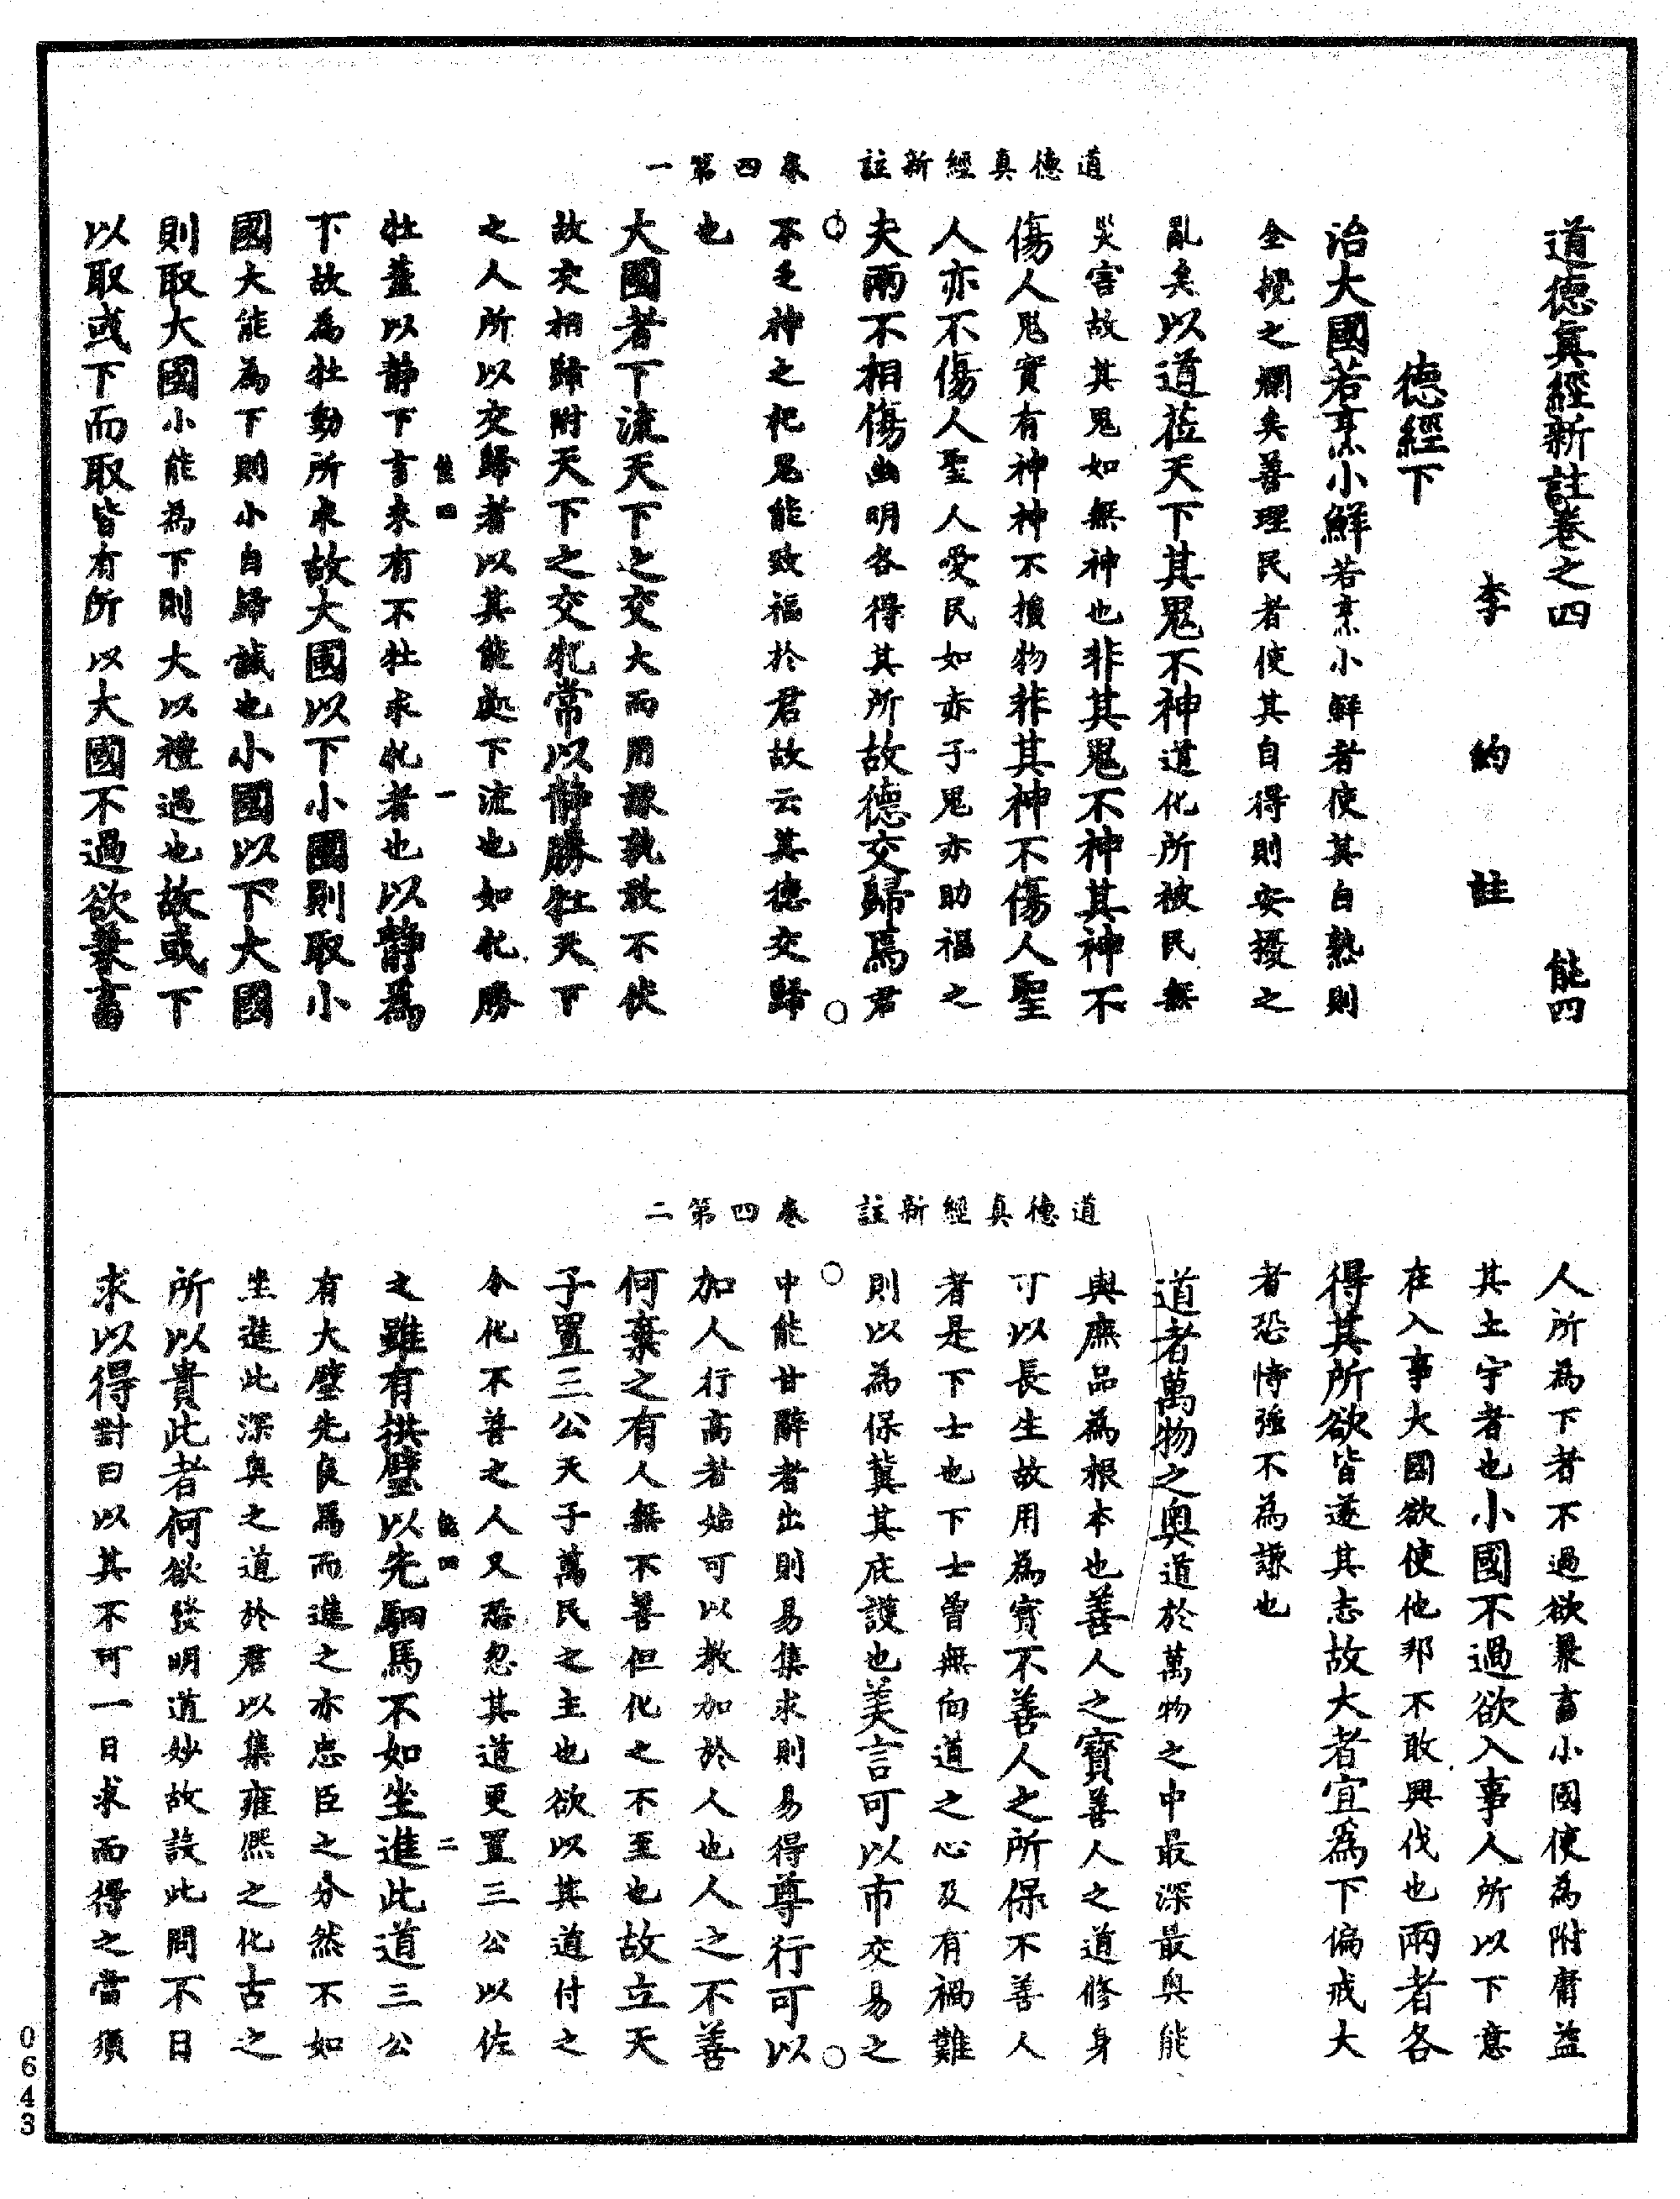 道德真經新註　卷四第一
道德真經新註卷之四　能四
李約註
德經下
治大國若烹小鮮若烹小鮮者使其自熟則
全攪之爛矣善理民者使其自得則安擾之
亂矣以道莅天下其鬼不神道化所被民無
災害故其鬼如無神也非其鬼不神其神不
傷人鬼實有神神不損物非其神不傷人聖
人亦不傷人聖人愛民如赤子鬼亦助福之
夫兩不相傷幽明各得其所故德交歸焉君
不乏神之祀鬼能致福於君故云其德交歸
也
大國者下流天下之交大而用謙孰敢不伏
故交相歸附天下之交牝常以靜勝牡天下
之人所以交歸者以其能處下流也如牝勝
能四　一
牡蓋以靜下言未有不牡求牝者也以靜為
下故為牡動所求故大國以下小國則取小
國大能為下則小自歸誠也小國以下大國
則取大國小能為下則大以禮過也故或下
以取或下而取皆有所以大國不過欲兼畜
道德真經新註　卷四第二
人所為下者不過欲畧畜小國使為附庸益
其土宇者也小國不過欲入事人所以下意
在入事大國欲使他邦不敢興伐也兩者各
得其所欲皆遂其志故大者宜為下偏戒大
者恐恃強不為謙也
道者萬物之奧道於萬物之中最深最奧能
與庶品為根本也善人之寶善人之道修身
可以長生故用為寶不善人之所保不善人
者是下士也下士曾無向道之心及有禍難
則以為保冀其庇護也美言可以市交易之
中能甘辭者出則易集求則易得尊行可以
加人行高者始可以教加於人也人之不善
何棄之有人無不善但化之不至也故立天
子置三公天子萬民之主也欲以其道付之
令化不善之人又恐忽其道更置三公以佐
能四　二
之雖有拱璧以先駟馬不如坐進此道三公
有大璧先良馬而進之亦忠臣之分然不如
坐進此深奧之道於君以集雍熙之化古之
所以貴此者何欲發明道妙故設此問不日
求以得對曰以其不可一日求而得之當須
0643